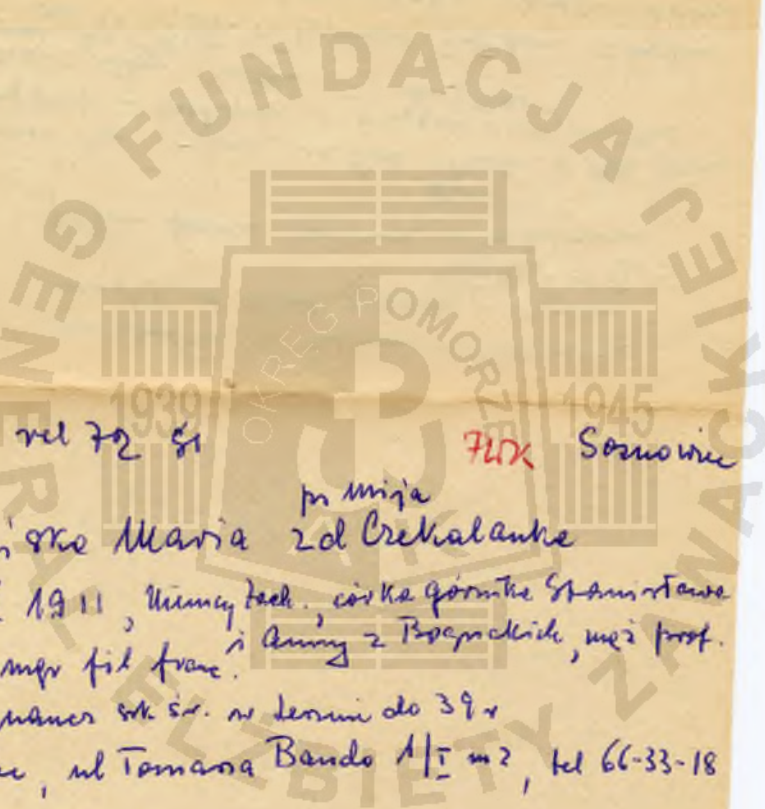 FUNDACJA GENERAŁ ELŻBIETY ZAWACKIEJ
OKRĘG POMORZE
1939 1945
AK
vel Sosnowiec
ps Mija
ska Maria zd Czekalanka
1911, Niemcy Zach., córka górnika Stanisława
i Anny z mąż prof.
mgr fil franc.
szk śr. w do 39 r
ul Tomasza Bando 1/I m 2, tel 66-33-18